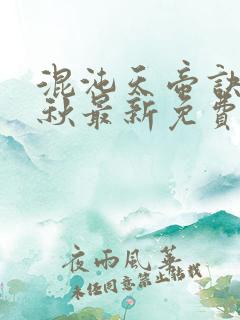 混沌天帝訣
秋最新免費
夜雨風華
未经同意禁止转载